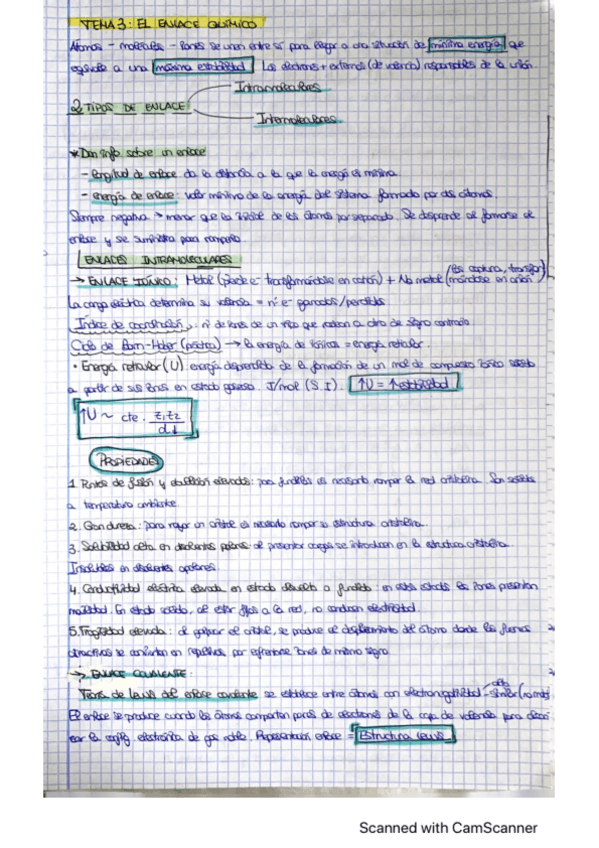 TEMA 3: EL ENLACE QUÍMICO
Átomos - moléculas - Iones se unen entre sí para llegar a una situación de mínima energía que
equivale a una máxima estabilidad. Los electrones + externos (de valencia) responsables de la unión.
2 TIPOS DE ENLACE
Intramoleculares
Intermoleculares
* Dan info sobre un enlace
- longitud de enlace da la distancia a la que la energía es mínima.
- energía de enlace: valor mínimo de la energía del sistema formado por dos átomos.
Siempre negativa → menor que la de los átomos por separado. Se desprende al formarse el
enlace y se suministra para romperlo.
ENLACES INTRAMOLECULARES
→ ENLACE IÓNICO: Metal (pierde e⁻ transformándose en catión) + No metal (los captura, transfor
mándose en anión)
La carga eléctrica determina su valencia = nº e⁻ ganados/perdidos
Índice de coordinación: nº de iones de un tipo que rodean a otro de signo contrario
Ciclo de Born-Haber → la energía de = energía reticular.
• Energía reticular (U): energía desprendida de la formación de un mol de compuesto iónico sólido
a partir de sus iones en estado gaseoso. J/mol (S.I). ↑U = ↑estabilidad
↑U ~ cte · z₁z₂ / d↓
PROPIEDADES
1. Puntos de fusión y ebullición elevados: para fundirlos es necesario romper la red cristalina. Son sólidos
a temperatura ambiente.
2. Gran dureza: para rayar un cristal es necesario romper su estructura cristalina.
3. Solubilidad alta en disolventes polares: al presentar cargas se introducen en la estructura cristalina.
Insolubles en disolventes apolares.
4. Conductividad eléctrica elevada en estado disuelto o fundido: en estos estados los iones presentan
movilidad. En estado sólido, al estar fijos a la red, no conducen electricidad.
5. Fragilidad elevada: al golpear el cristal, se produce el desplazamiento del átomo donde las fuerzas
atractivas se convierten en repulsivas por enfrentarse iones de mismo signo.
→ ENLACE COVALENTE:
Teoría de Lewis del enlace covalente se establece entre átomos con electronegatividad alta similar (no met)
El enlace se produce cuando los átomos comparten pares de electrones de la capa de valencia para alcan
zar la config. electrónica de gas noble. Representación enlace = Estructura Lewis
Scanned with CamScanner